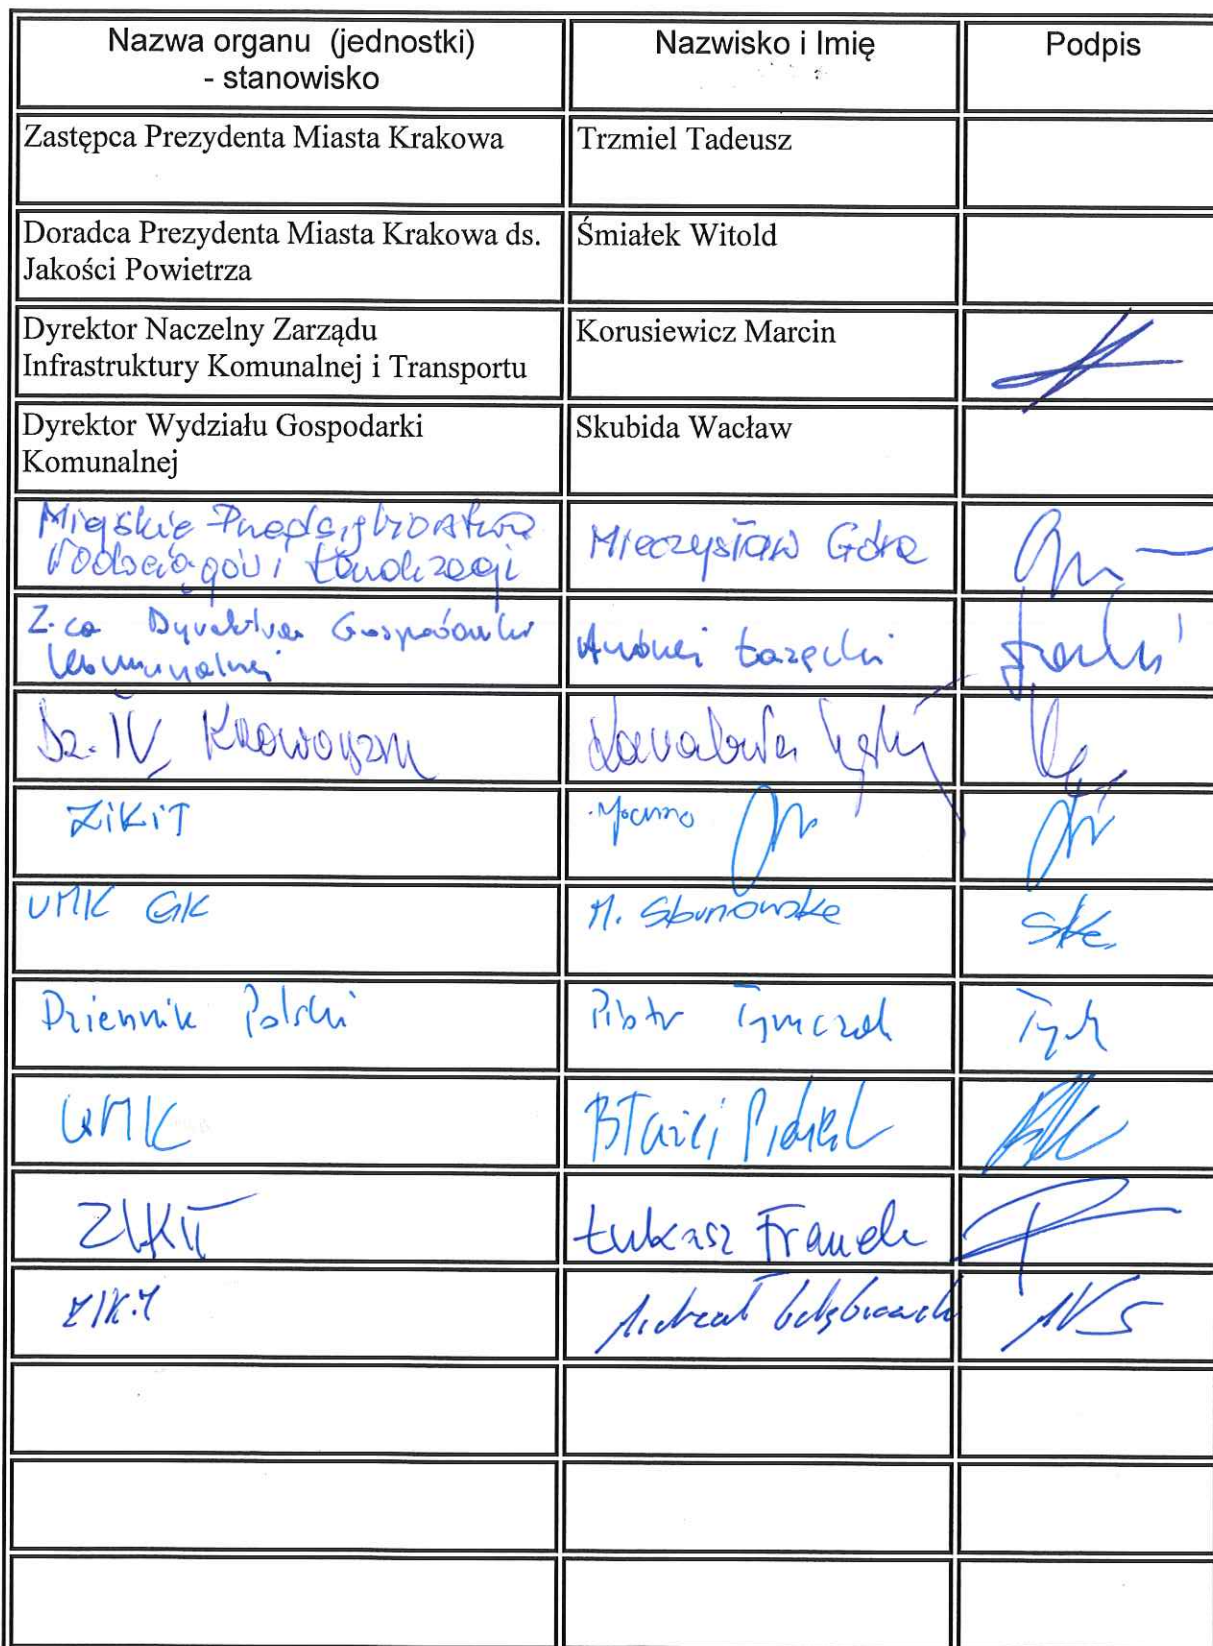 Nazwa organu (jednostki)
- stanowisko
Nazwisko i Imię
Podpis
Zastępca Prezydenta Miasta Krakowa
Trzmiel Tadeusz
Doradca Prezydenta Miasta Krakowa ds.
Jakości Powietrza
Śmiałek Witold
Dyrektor Naczelny Zarządu
Infrastruktury Komunalnej i Transportu
Korusiewicz Marcin
Dyrektor Wydziału Gospodarki
Komunalnej
Skubida Wacław
Miejskie Przedsiębiorstwo
Wodociągów i Kanalizacji
Mieczysław Góra
Z-ca Dyrektora Gospodarki
Komunalnej
Andrzej Łazęcki
Dz. IV
ZiKiT
UMK GK
M.
Dziennik Polski
Piotr Tymczak
UMK
Błażej
ZIKiT
Łukasz Franek
ZIKiT